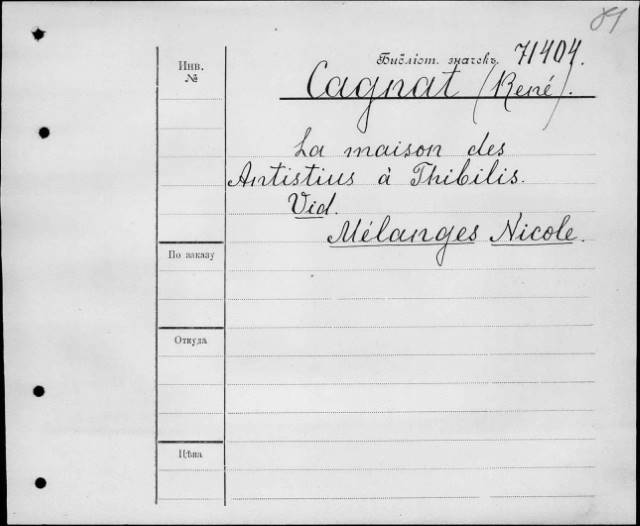 81
Библіот. значекъ 71404.
Инв.
№
Cagnat (René).
La maison des
Antistius à Thibilis.
Vid.
Mélanges Nicole.
По заказу
Откуда
Цѣна